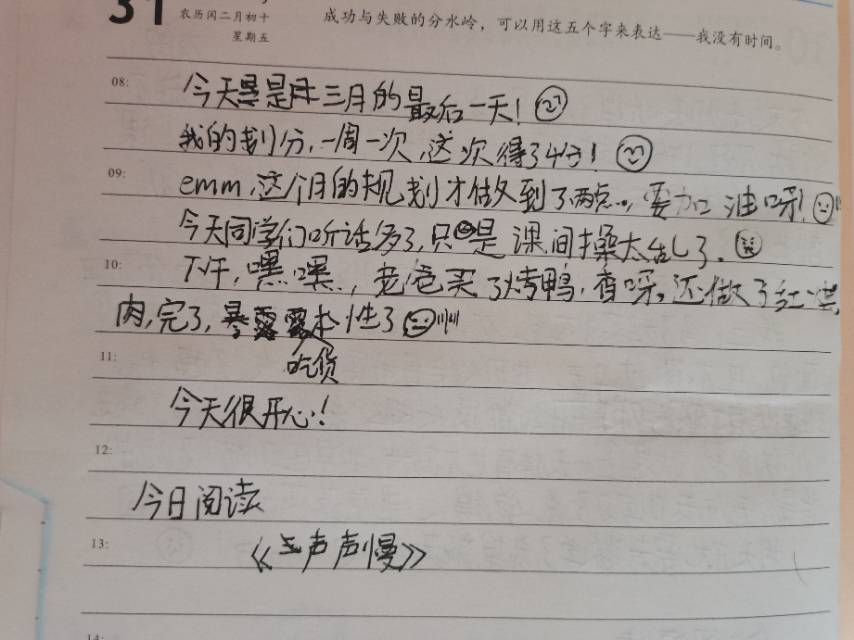 31
农历闰二月初十
星期五
成功与失败的分水岭，可以用这五个字来表达——我没有时间。
08:
今天是三月的最后一天!
我的划分,一周一次,这次得了4分!
09:
emm,这个月的规划才做到了两点..,要加油呀!
今天同学们听话多了,只是课间操太乱了.
10:
下午,嘿嘿..,老爸买了烤鸭,香呀。还做了红烧
肉,完了,暴露本性了
吃货
11:
今天很开心!
12:
今日阅读
13:
《声声慢》
14: